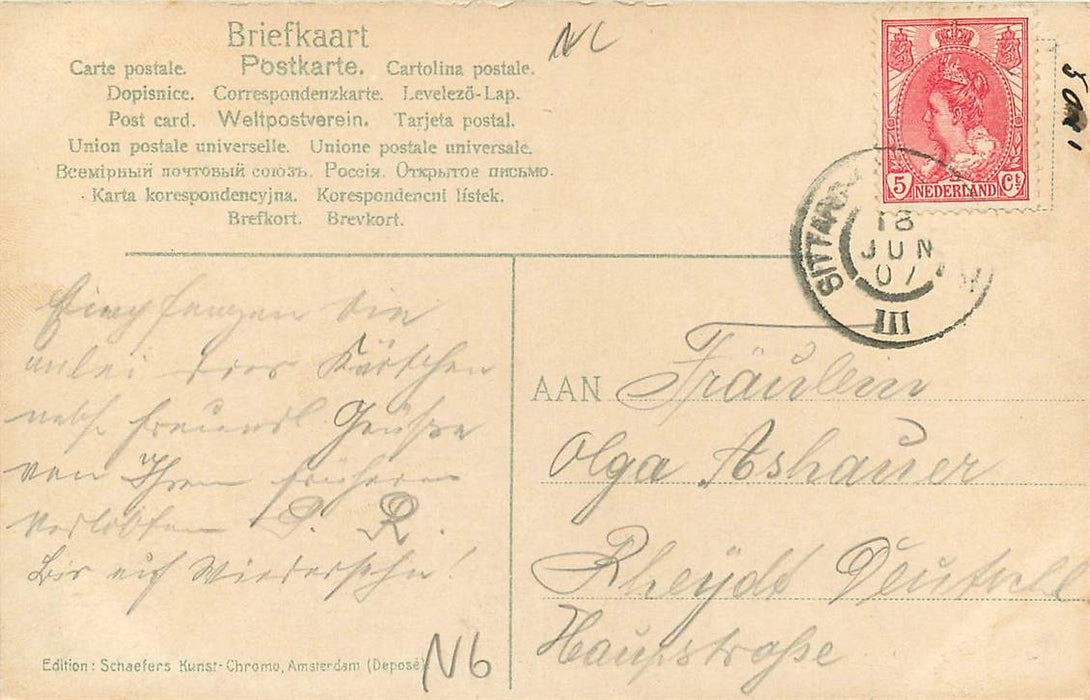 Briefkaart
Carte postale. Postkarte. Cartolina postale.
Dopisnice. Correspondenzkarte. Levelező-Lap.
Post card. Weltpostverein. Tarjeta postal.
Union postale universelle. Unione postale universale.
Всемірный почтовый союзъ. Россія. Открытое письмо.
Karta korespondencyjna. Korespondencni lístek.
Brefkort. Brevkort.
NL
5 Ct NEDERLAND
SITTARD
18
JUN
07
III
Empfangen Sie
anbei dies Kärtchen
nebst freundl Grüße
von Ihrem früheren
Verlobten P. R.
Bis auf Wiedersehn!
AAN Fräulein
Olga Ashauer
Rheydt Deutschl
Hauptstraße
Edition: Schaefers Kunst-Chromo, Amsterdam (Deposé)
N6